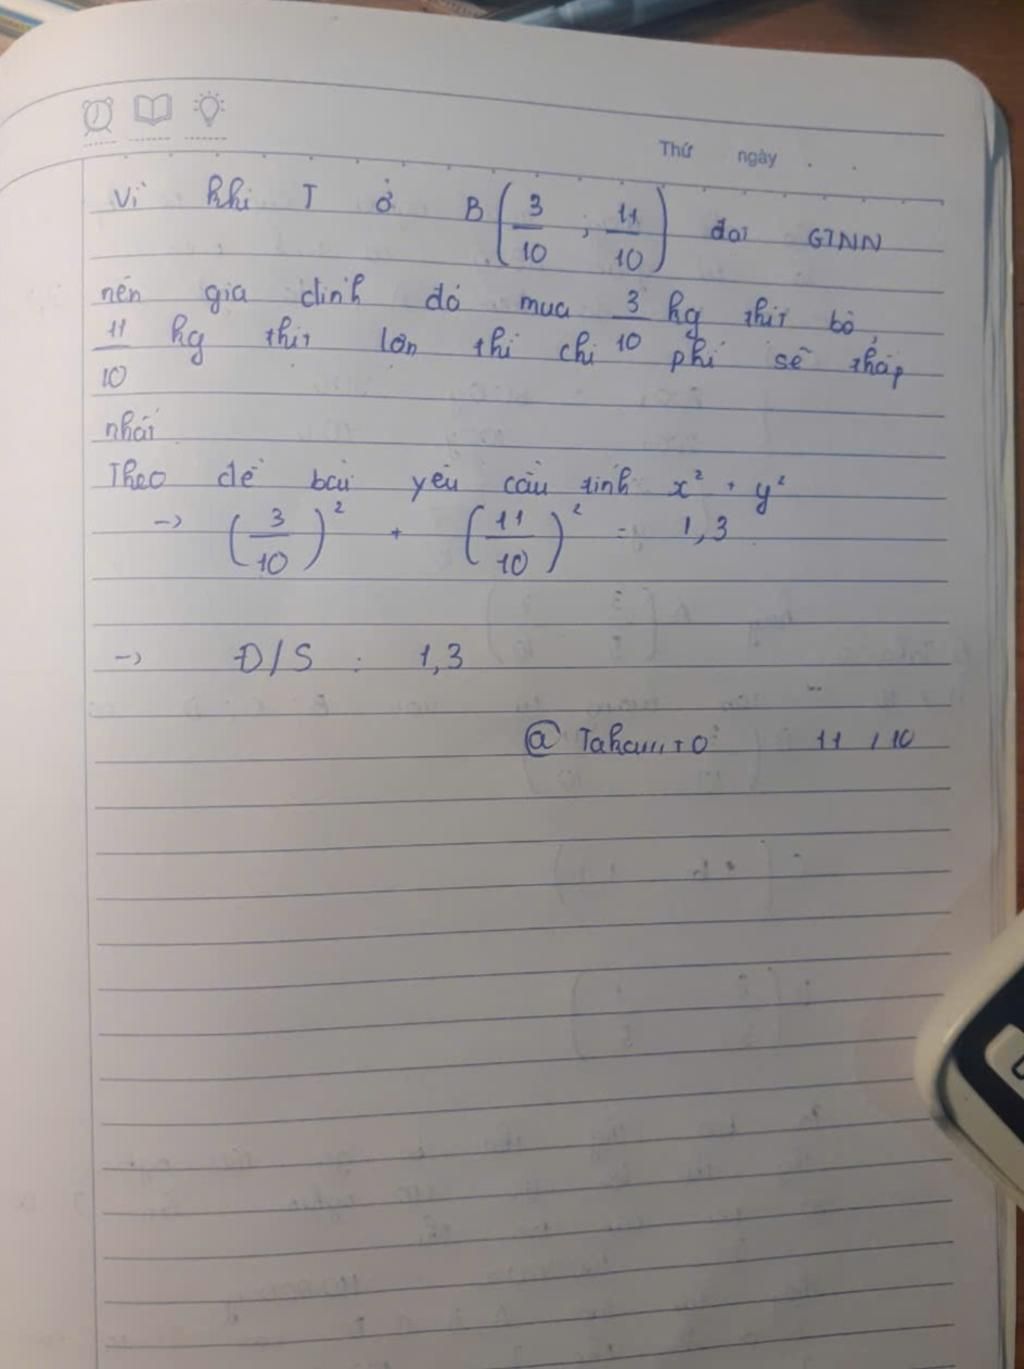 Thứ ngày
Vì khi T ở B(3/10 ; 11/10) đạt GTNN
nên gia đình đó mua 3/10 kg thịt bò,
11/10 kg thịt lợn thì chi phí sẽ thấp
nhất
Theo đề bài yêu cầu tính x² + y²
-> (3/10)² + (11/10)² = 1,3
-> Đ/S : 1,3